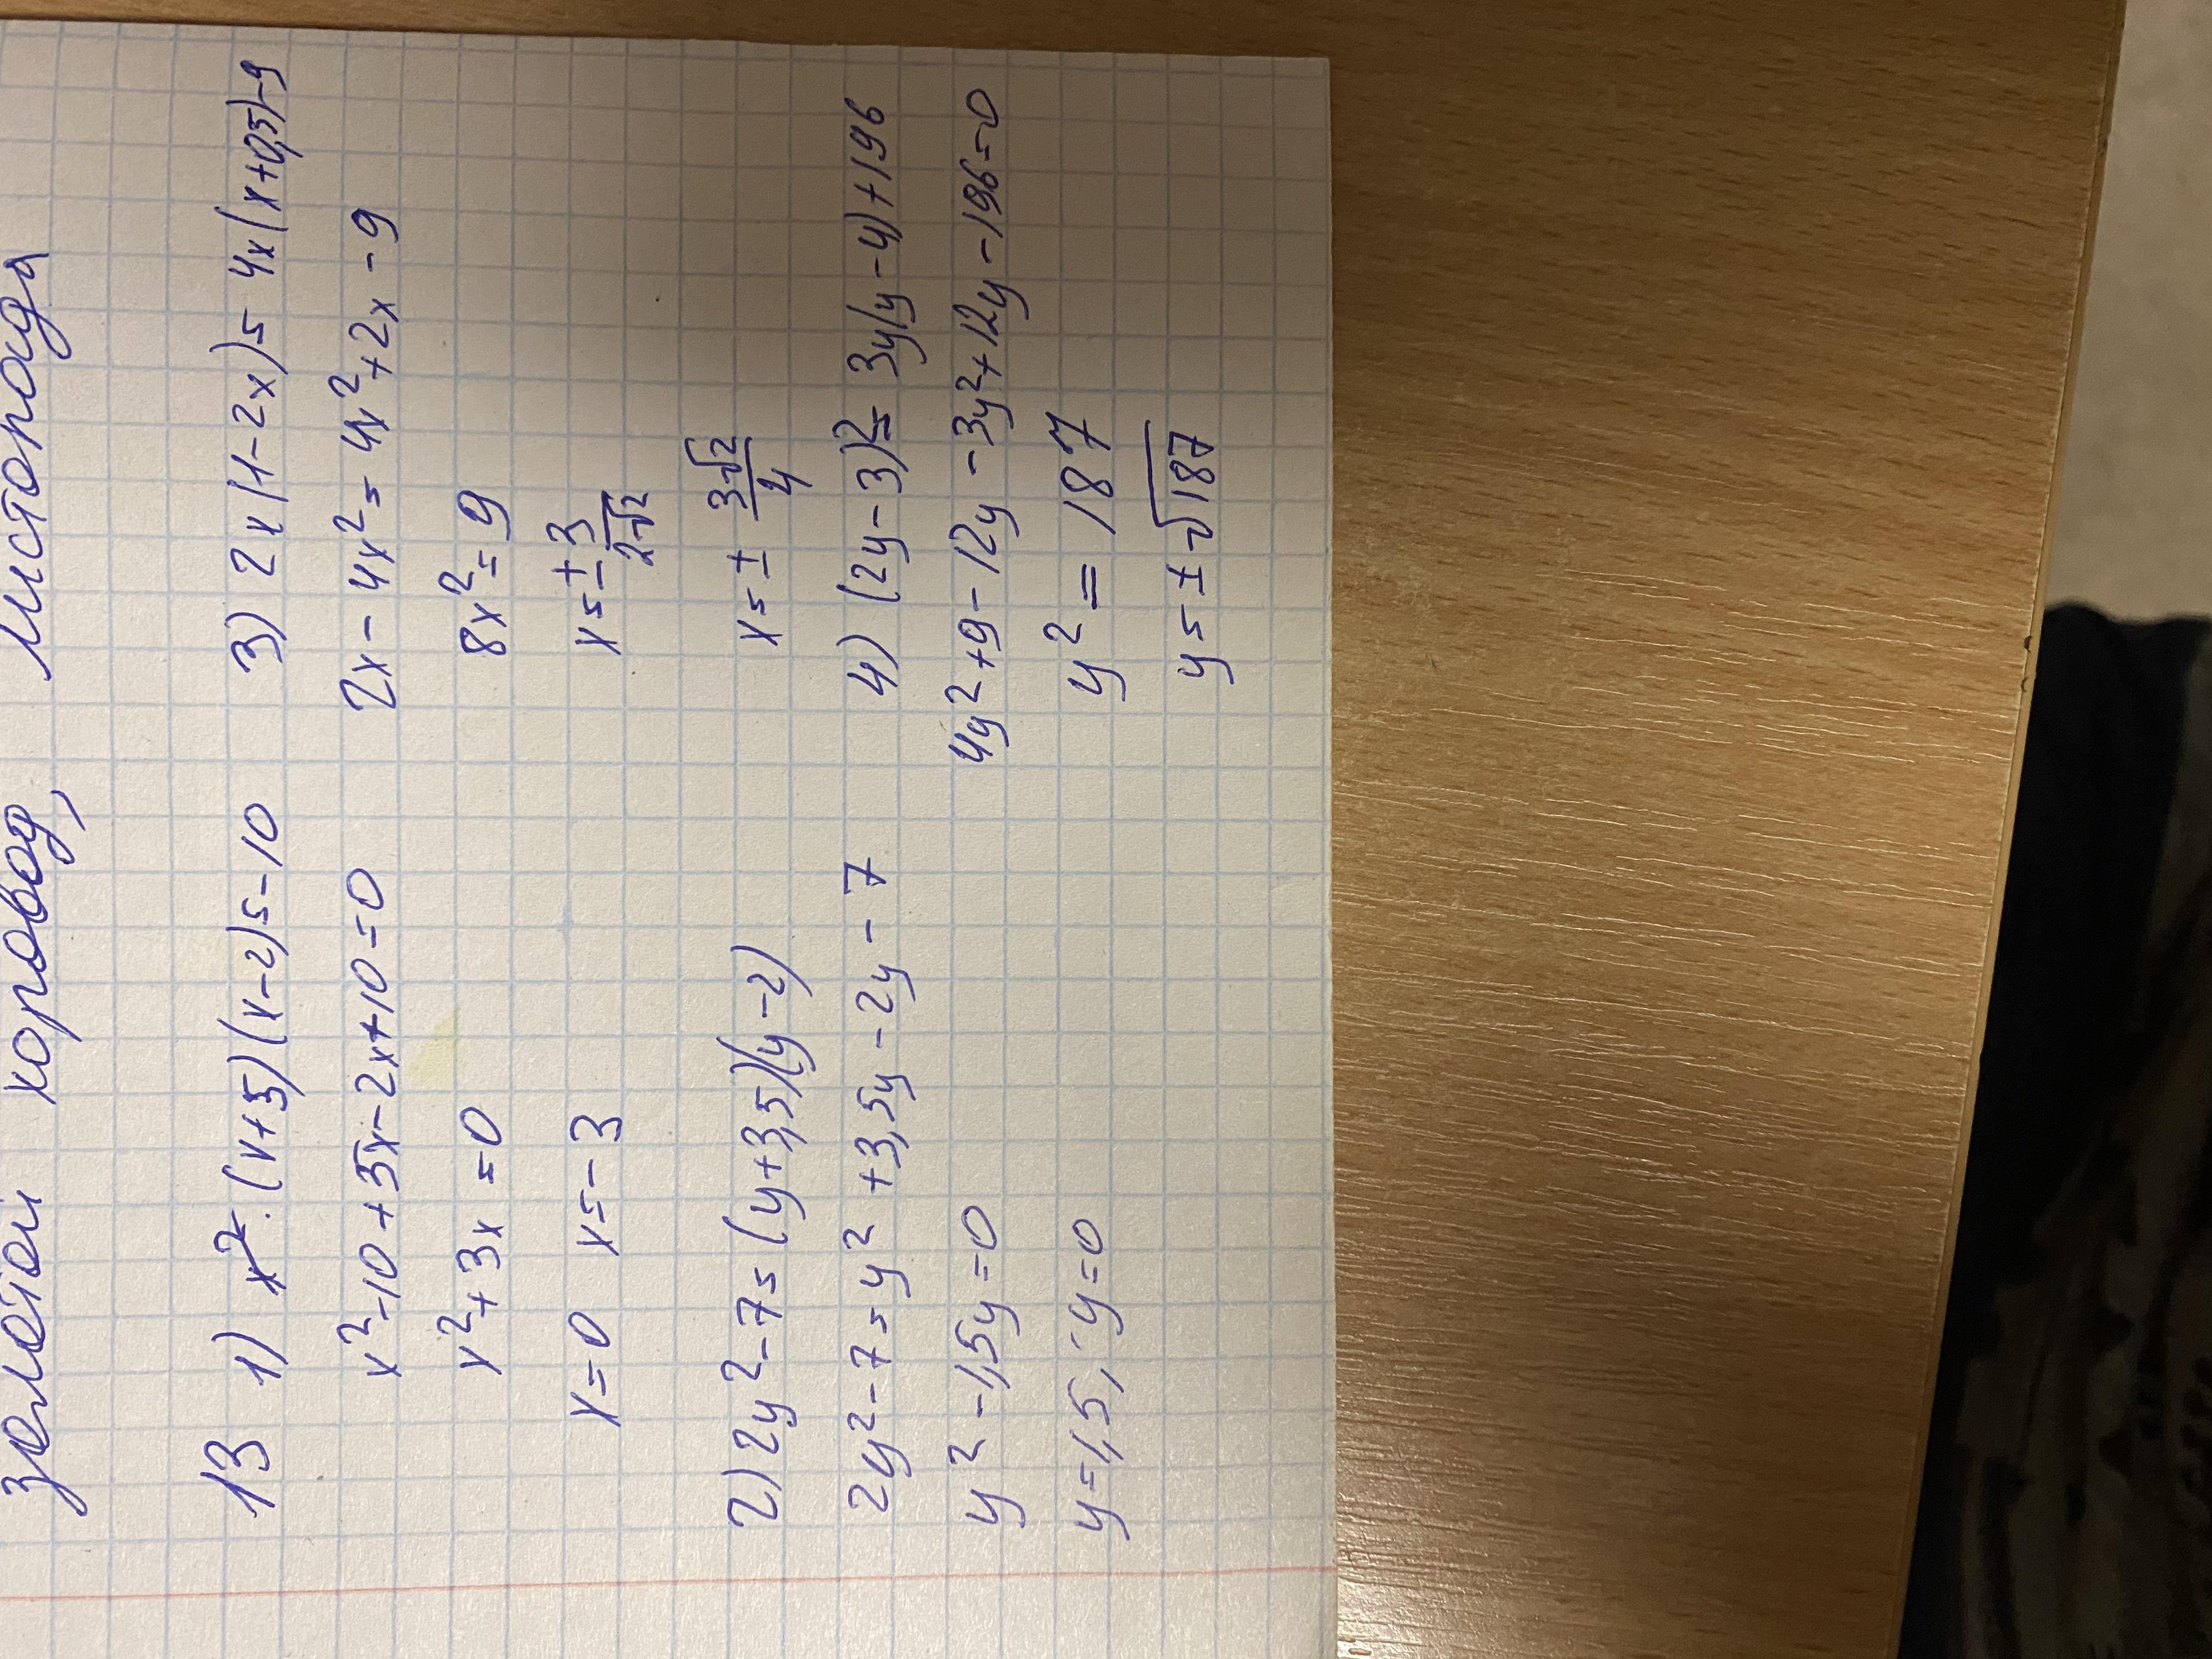 золотой хоровод, листопада
13 1) x². (x+5)(x-2)=-10
x²-10+5x-2x+10=0
x²+3x=0
x=0 x=-3
2) 2y²-7=(y+3,5)(y-2)
2y²-7=y²+3,5y-2y-7
y²-1,5y=0
y=1,5; y=0
3) 2x(1-2x)=4x(x+0,5)-9
2x-4x²=4x²+2x-9
8x²=9
x=±3/2√2
x=±3√2/4
4) (2y-3)²=3y(y-4)+196
4y²+9-12y-3y²+12y-196=0
y²=187
y=±√187